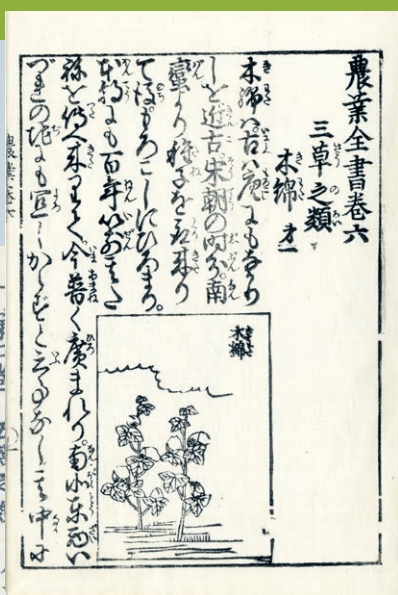 農業全書卷六
三草之類
木綿 才一
木綿ハ古ハ唐にもなかり
しを近古宋朝の時分南
蠻より種子を取来り
て後もろこしにひろまり。
本朝にも百年以前其た
祢を傳へ来りて今普く廣まれり。南北東西い
づれの地にも宜しからずと云事なし其中に
木綿